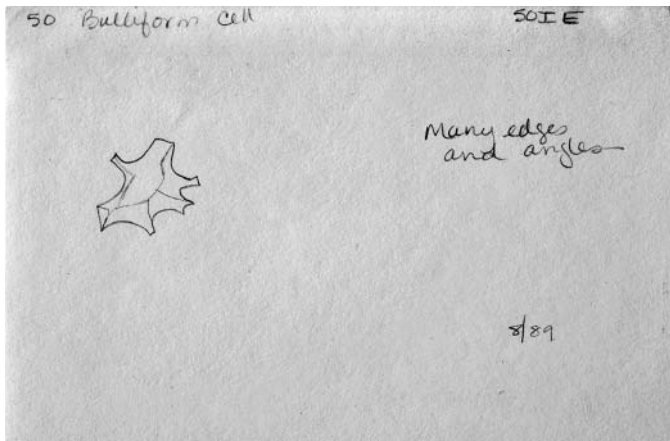 50 Bulliform Cell
50IE
Many edges
and angles
8/89